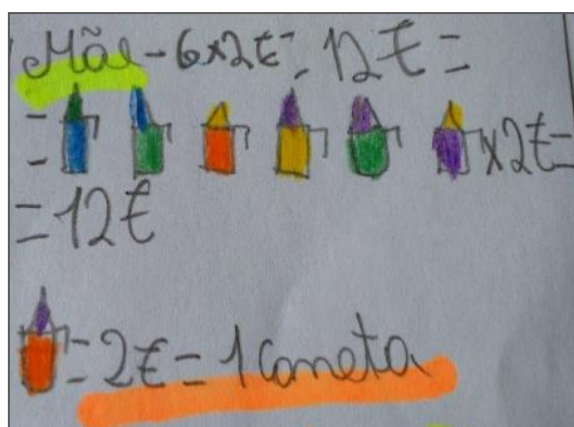 Mãe - 6x2€ = 12€ =
= x2€ =
= 12€
= 2€ = 1 Caneta